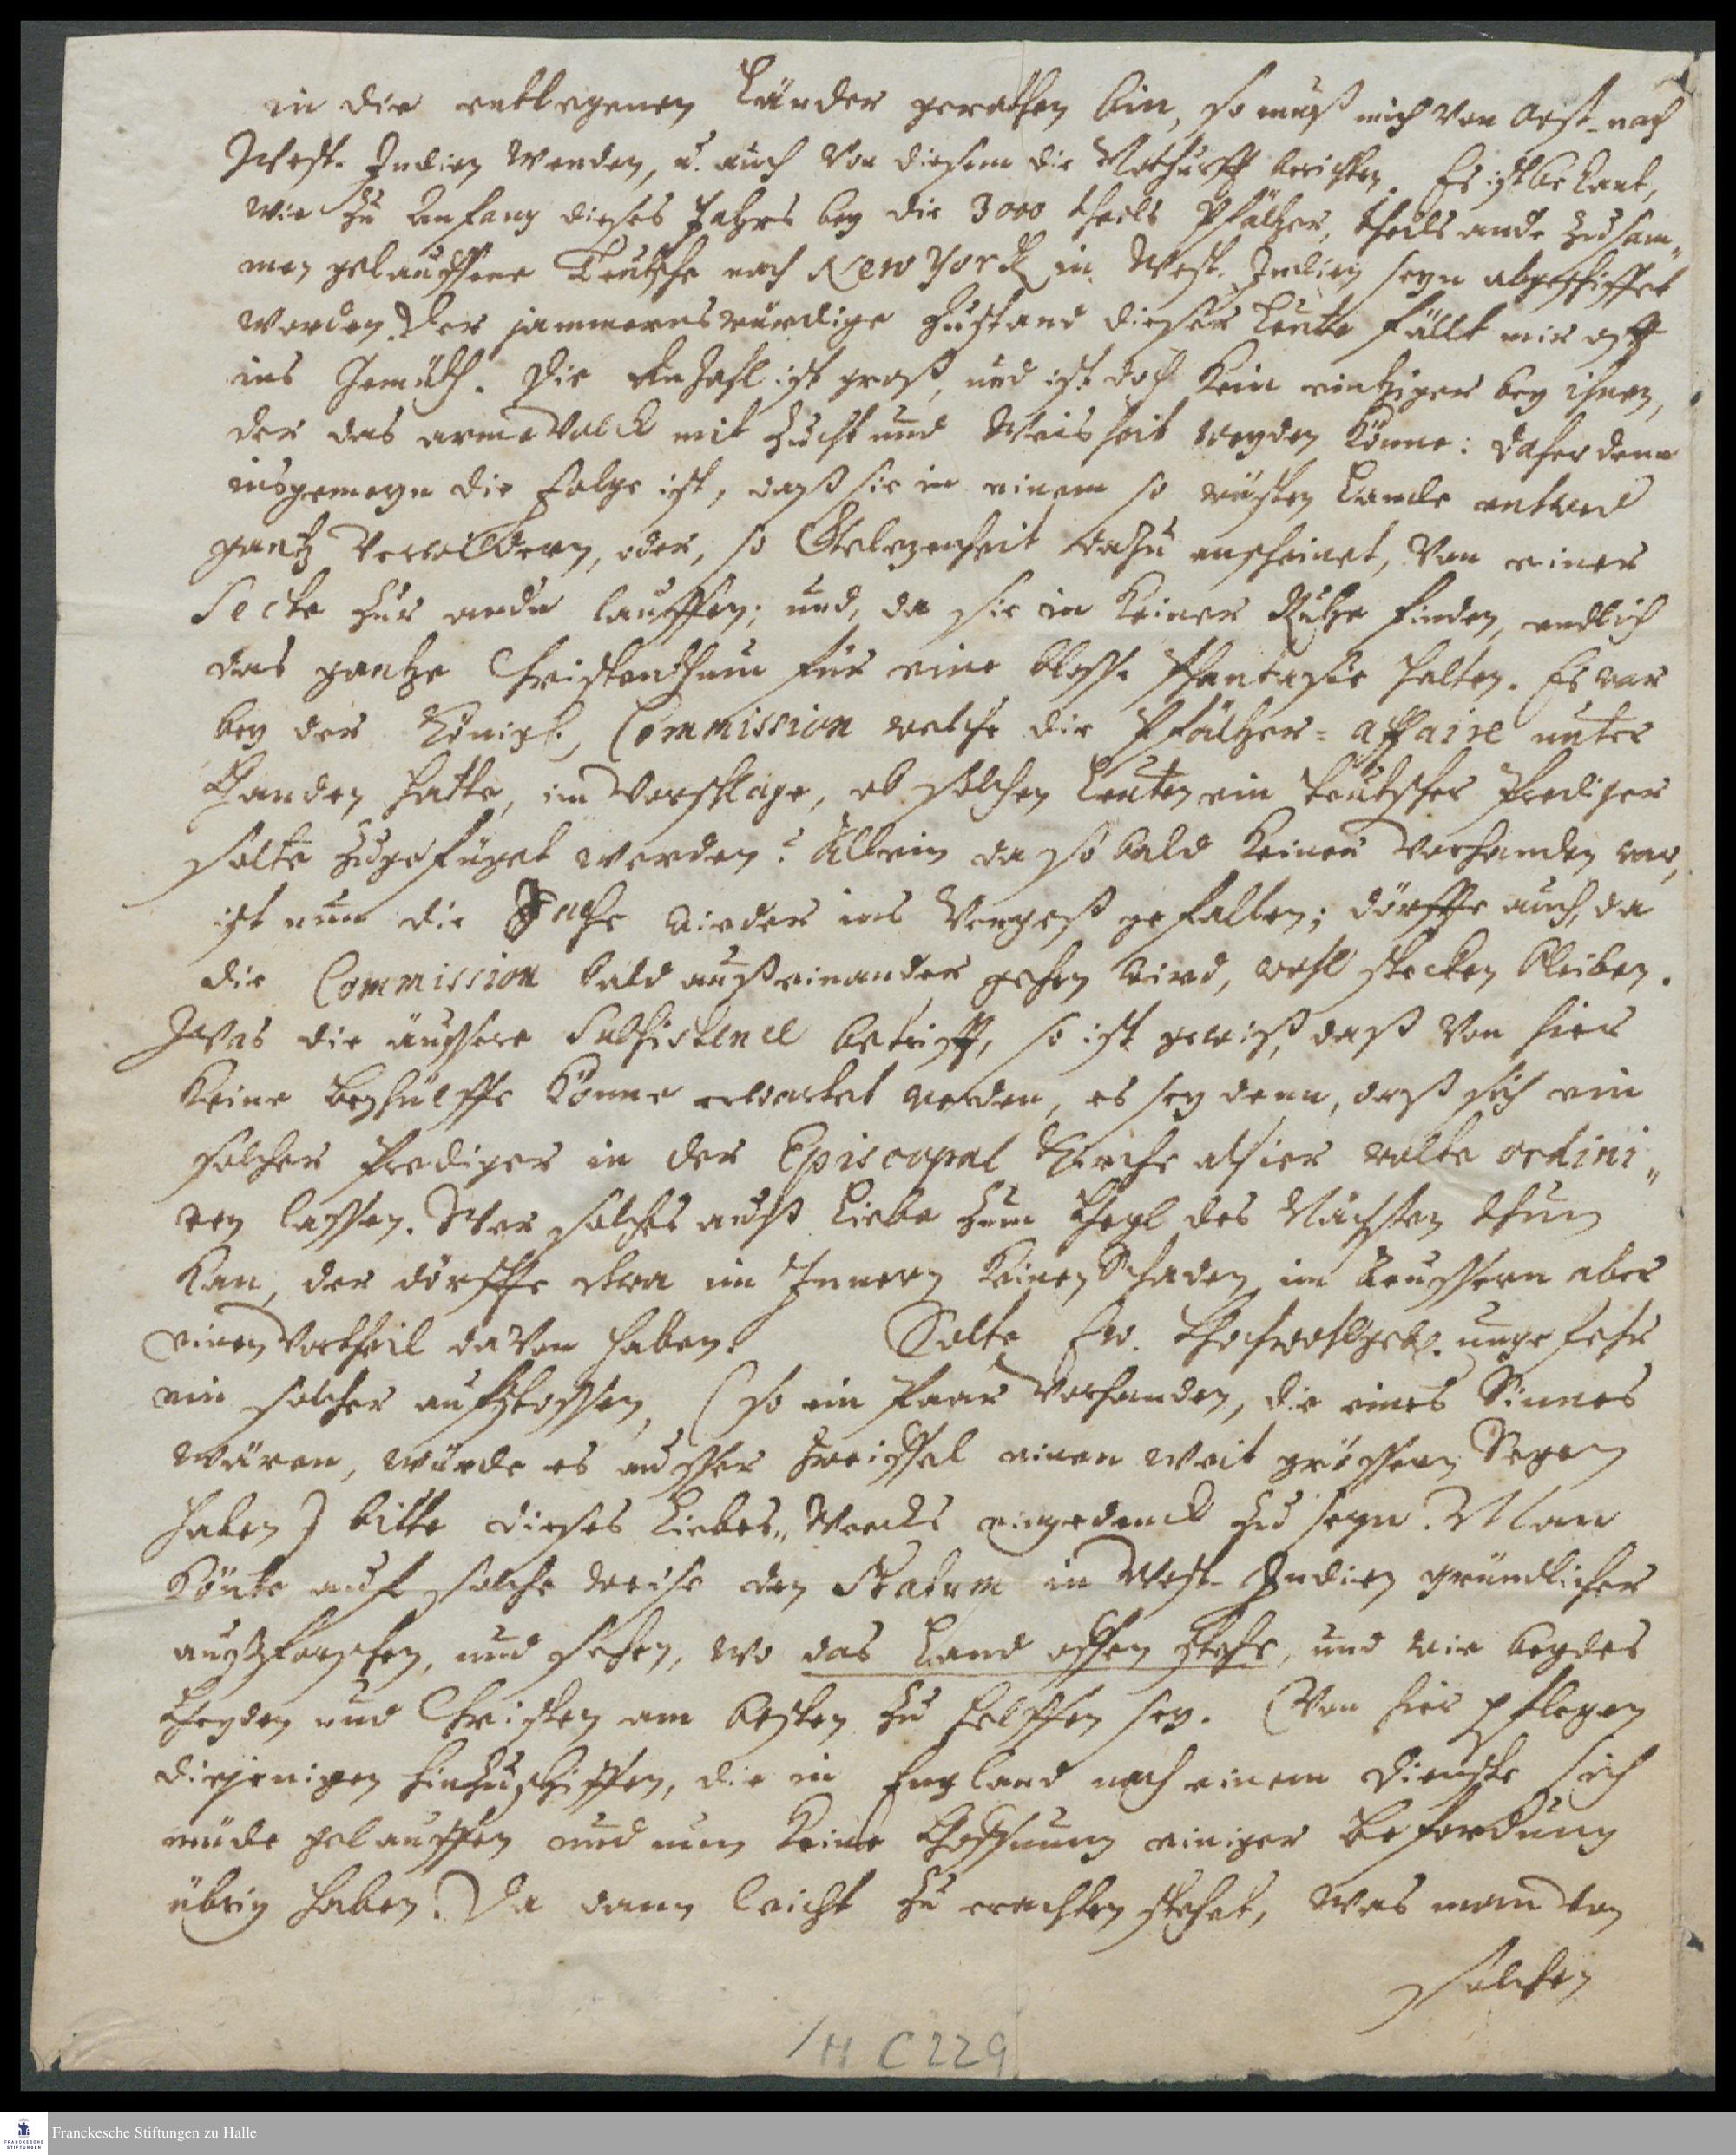 in die entlegenen Länder gerathen bin, so muß mich von Ost- nach
West-Indien wenden, u. auch von diesem die Nothurfft berichten. Es ist bekant,
wie zu Anfang dieses Jahrs bey die 3000 theils Pfältzer, theils andr zusam„
men gelauffene Teutsche nach New Yorck in West-Indien seyn abgeschiffet
worden. Der jammernswürdige Zustand dieser Leute fällt mir offt
ins Gemüth. Die Anzahl ist groß, und ist doch kein eintziger bey ihnen,
der das arme Volck mit Zucht und Weisheit weyden könne: daher denn
insgemeyn die Folge ist, daß sie in einem so wüsten Lande entwed
gantz verwildern, oder, so Gelegenheit dazu anscheinet, von einer
Secte zur andn lauffen; und, da sie in keiner Ruhe finden, endlich
das gantze Christenthum für eine blosse Phantasie halten. Es war
bey der Königl. Commission welche die Pfältzer-affaire unter
Handen hatte, im Vorschlage, ob solchen Leuten ein teutscher Prediger
solte zugefüget werden? Allein da so bald keiner vorhanden war,
ist nun die Sache wieder ins Vergeß gefallen; dörffte auch, da
die Commission bald außeinander gehen wird, wohl stecken bleiben.
Was die äussere Subsistence betrifft, so ist gewiß, daß von hier
keine Beyhülffe könne erwartet werden, es sey denn, daß sich ein
solcher Prediger in der Episcopal Kirche alhier wolte ordini„
ren lassen. Wer solches auß Liebe zum Heyl des Nächsten thun
kan, der dörffte etwa im Innern keinen Schaden, im Aeussern aber
einen Vortheil davon haben. Solte Ew. Hochwohlgeb. ungefehr
ein solcher aufstossen, (so ein Paar vorhanden, die eines Sinnes
wären, würde es ausser Zweiffel einen weit grössern Segen
haben) bitte dieses Liebes„Wercks eingedenck zu seyn. Man
könte auf solche Weise den Statum in West-Indien gründlicher
außforschen, und sehen, wo das Land offen stehe, und wie beydes
Heyden und Christen am besten zu helffen sey. Von hier pflegen
diejenigen hinzuschiffen, die in England nach einem Dienste sich
müde gelauffen und nun keine Hoffnung einiger Befordrung
übrig haben. Da dann leicht zu erachten stehet, was man von
solchen
H C 229
Franckesche Stiftungen zu Halle